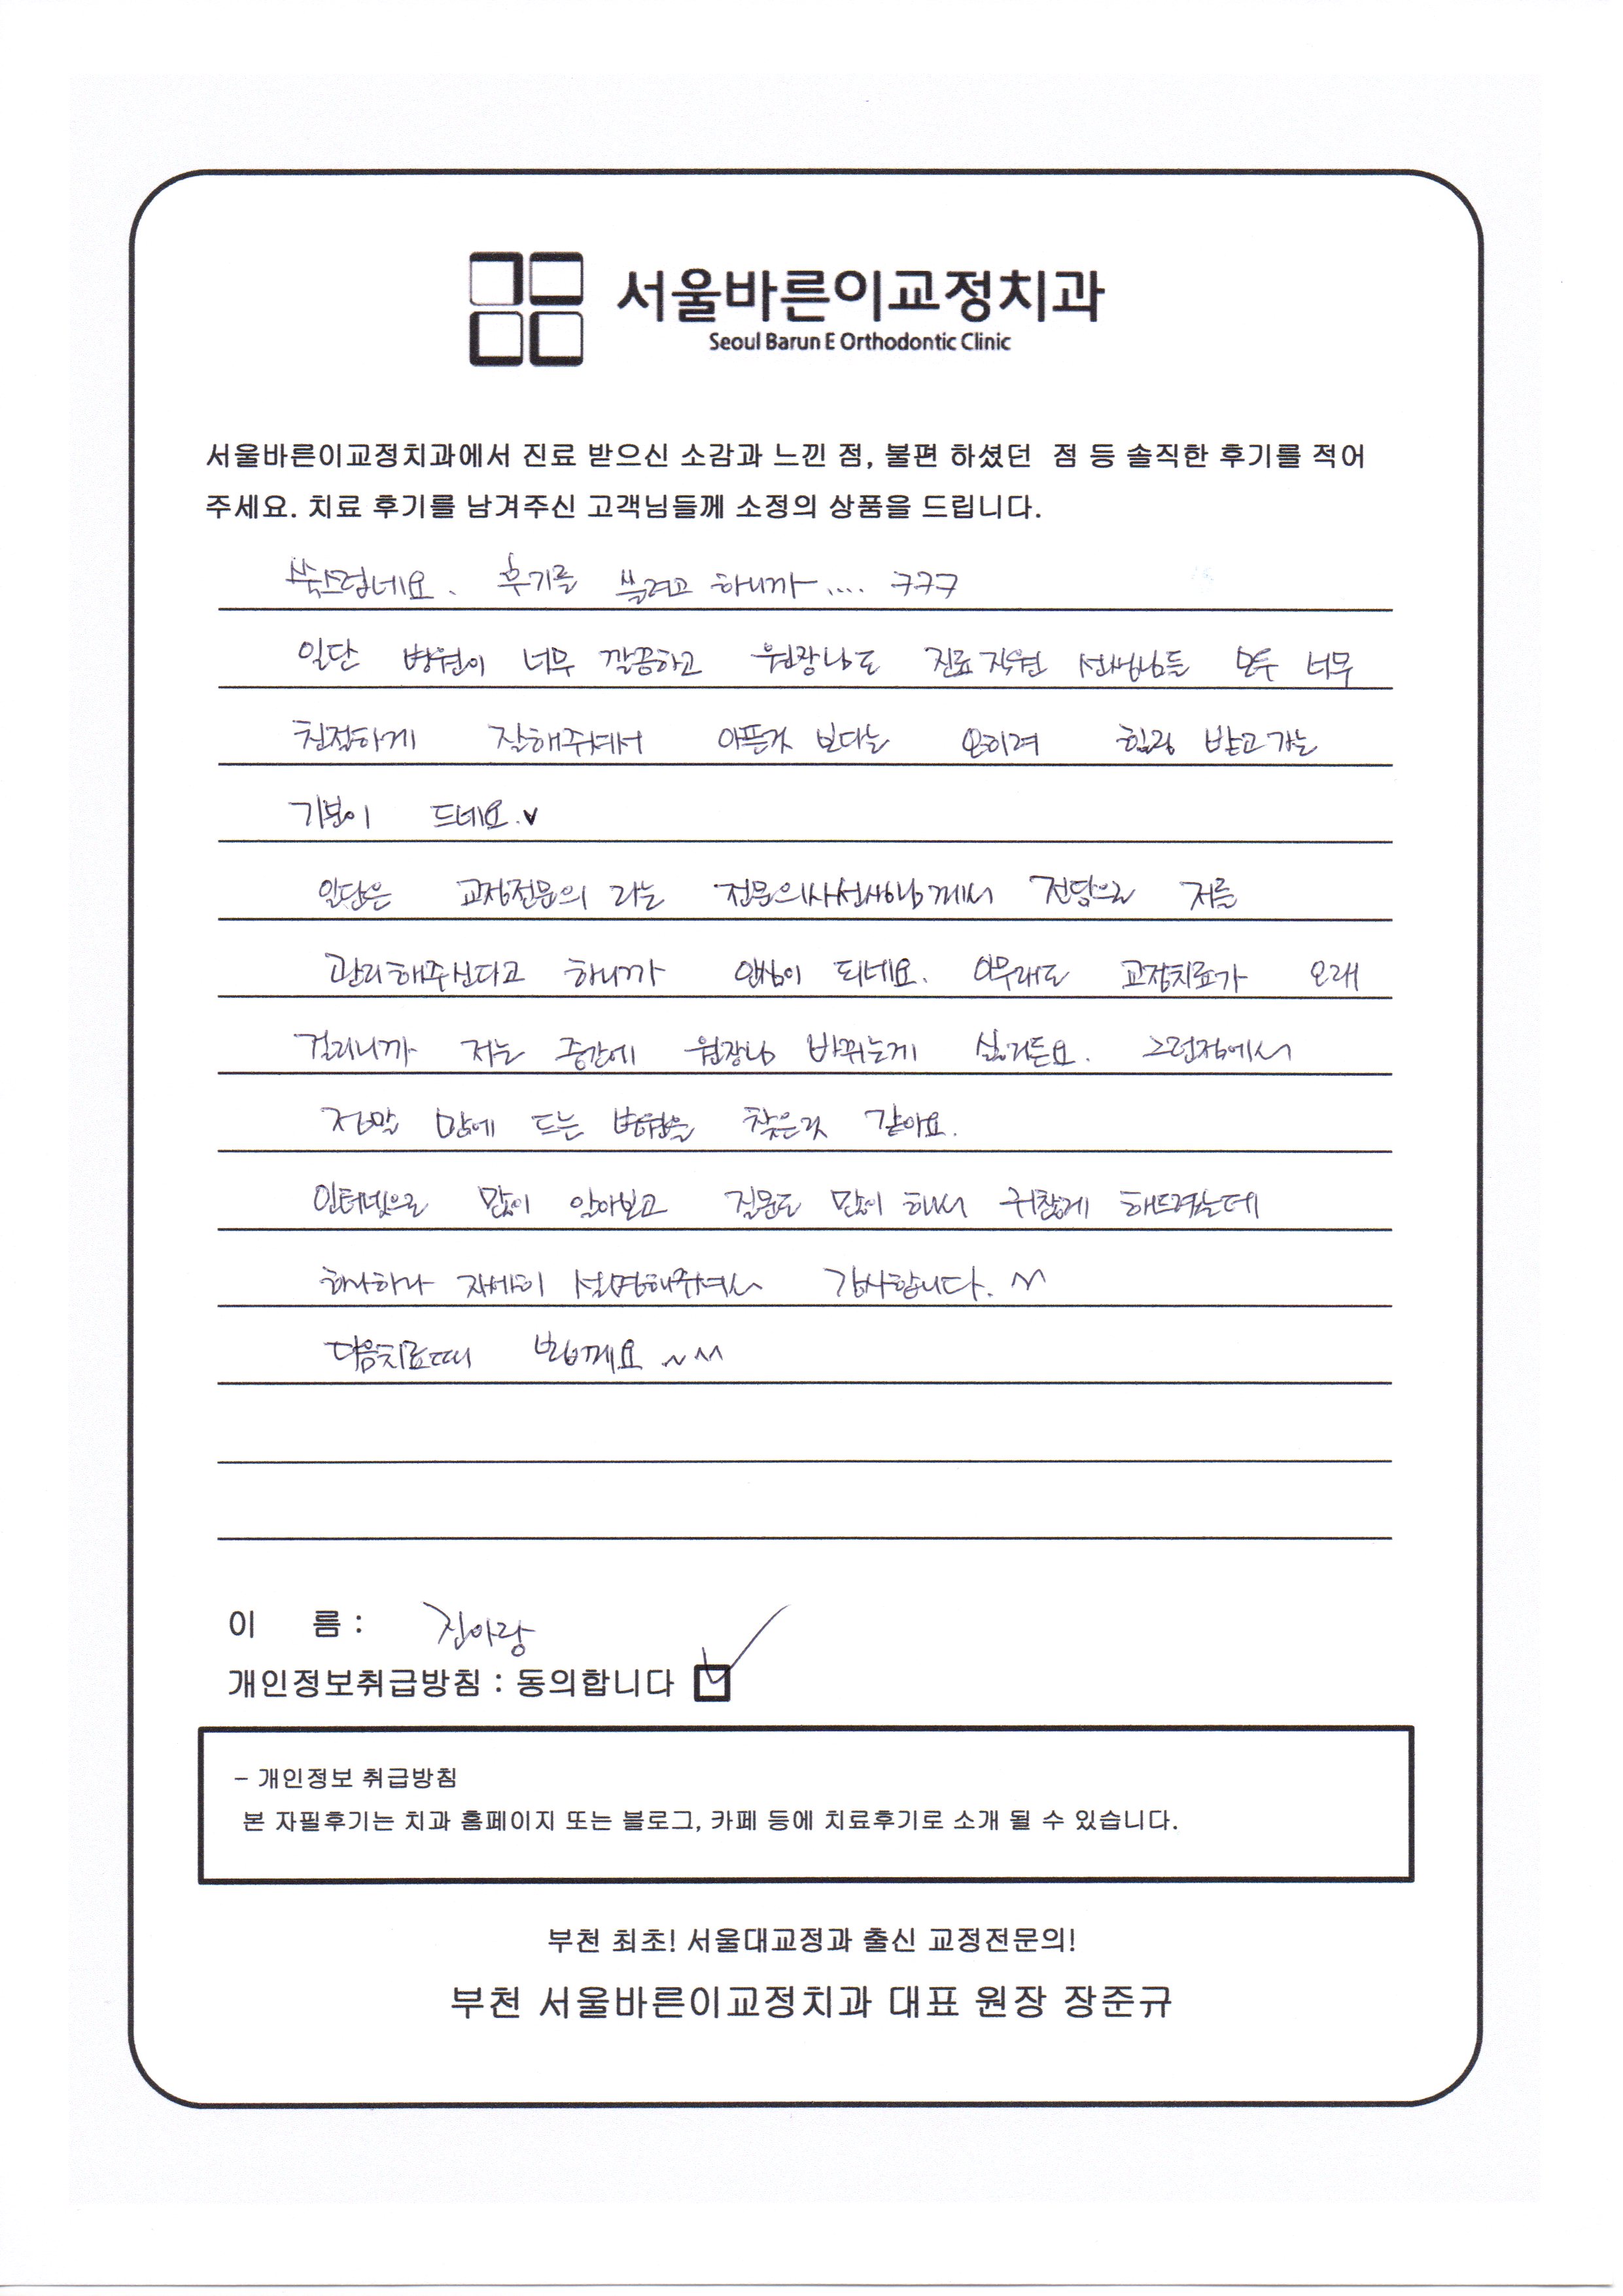 서울바른이교정치과
Seoul Barun E Orthodontic Clinic
서울바른이교정치과에서 진료 받으신 소감과 느낀 점, 불편 하셨던 점 등 솔직한 후기를 적어
주세요. 치료 후기를 남겨주신 고객님들께 소정의 상품을 드립니다.
쑥스럽네요. 후기를 쓸려고 하니까.... ㅋㅋㅋ
일단 병원이 너무 깔끔하고 원장님도 진료직원 선생님들 모두 너무
친절하게 잘해줘서 아픈거 보다는 오히려 힐링 받고가는
기분이 드네요.♥
일단은 교정전문의 라는 전문의사선생님께서 전담으로 저를
관리해주신다고 하니까 안심이 되네요. 아무래도 교정치료가 오래
걸리니까 저는 중간에 원장님 바뀌는게 싫거든요. 그런점에서
정말 맘에 드는 병원을 찾은것 같아요.
인터넷으로 많이 알아보고 질문도 많이 해서 귀찮게 해드렸는데
하나하나 자세히 설명해주셔서 감사합니다. ^^
다음치료때 뵐께요 ~^^
이 름 : 진아랑
개인정보취급방침 : 동의합니다
- 개인정보 취급방침
본 자필후기는 치과 홈페이지 또는 블로그, 카페 등에 치료후기로 소개 될 수 있습니다.
부천 최초! 서울대교정과 출신 교정전문의!
부천 서울바른이교정치과 대표 원장 장준규